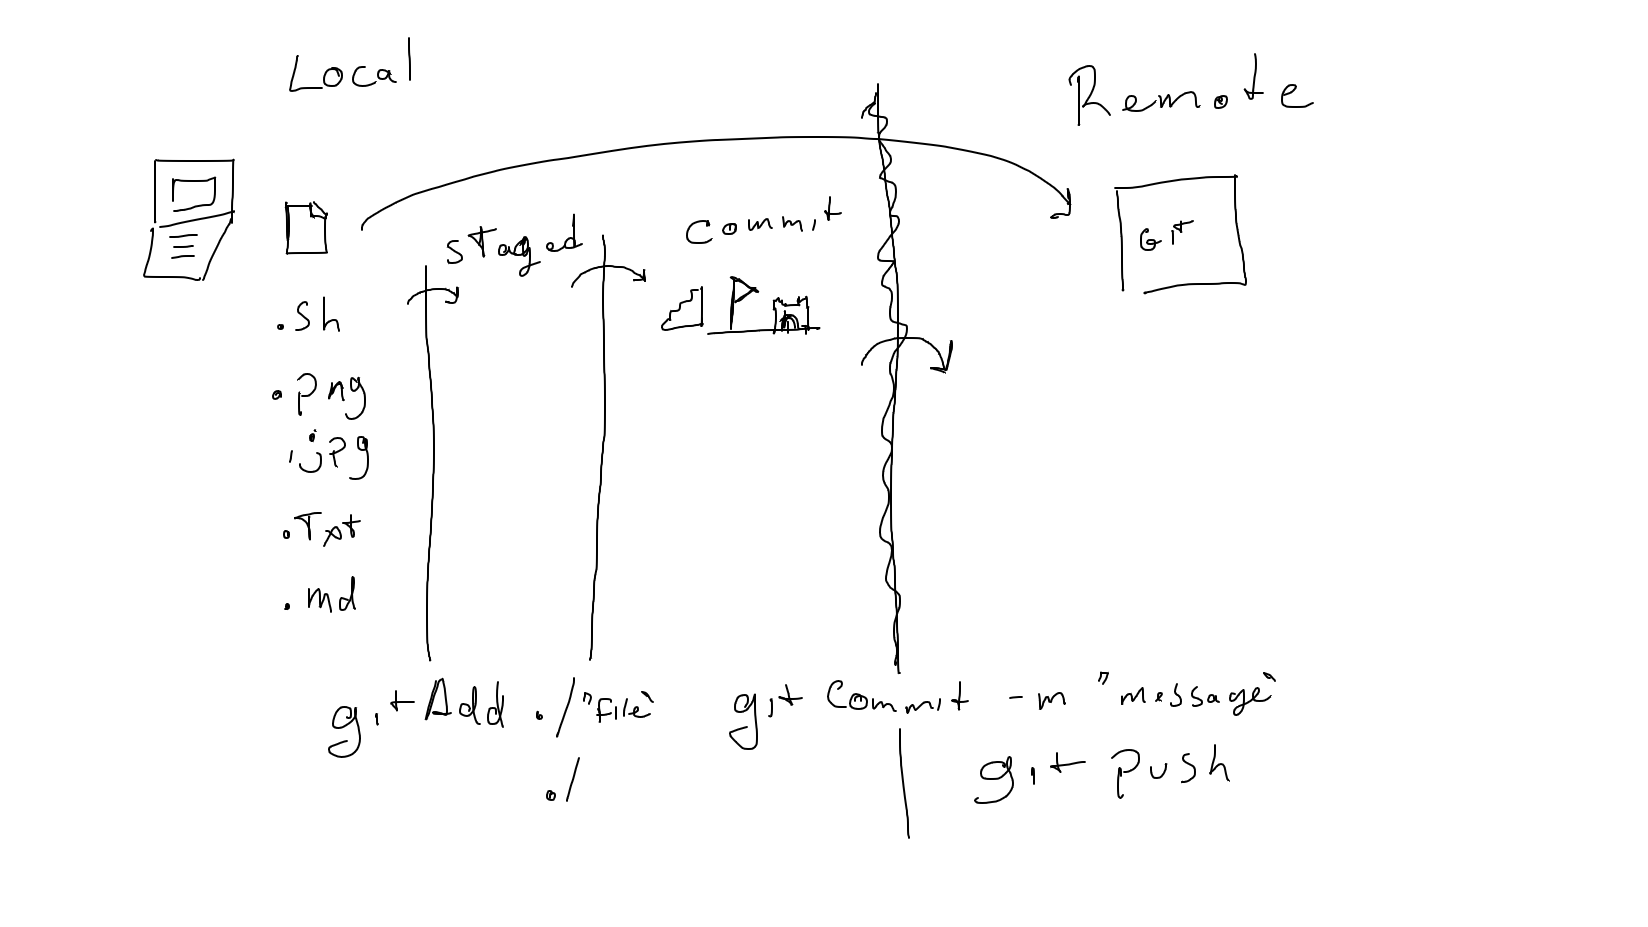 Local
Remote
staged
Commit
Git
.sh
.png
.jpg
.Txt
.md
git Add ./"File"
./
git Commit -m "message"
git push